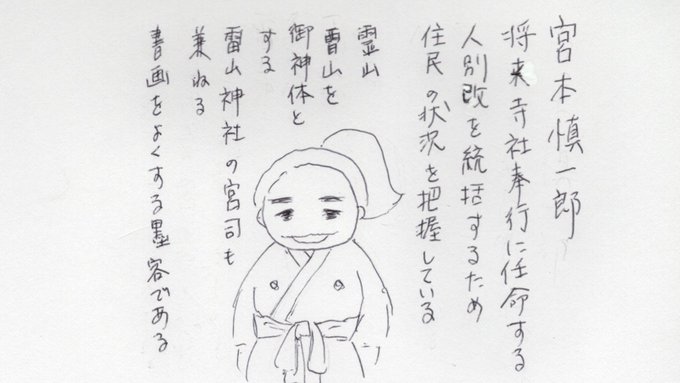 宮本慎一郎
将来寺社奉行に任命する
人別改を統括するため
住民の状況を把握している
霊山
曹山を
御神体と
する
雷山神社の宮司も
兼ねる
書画をよくする墨客である